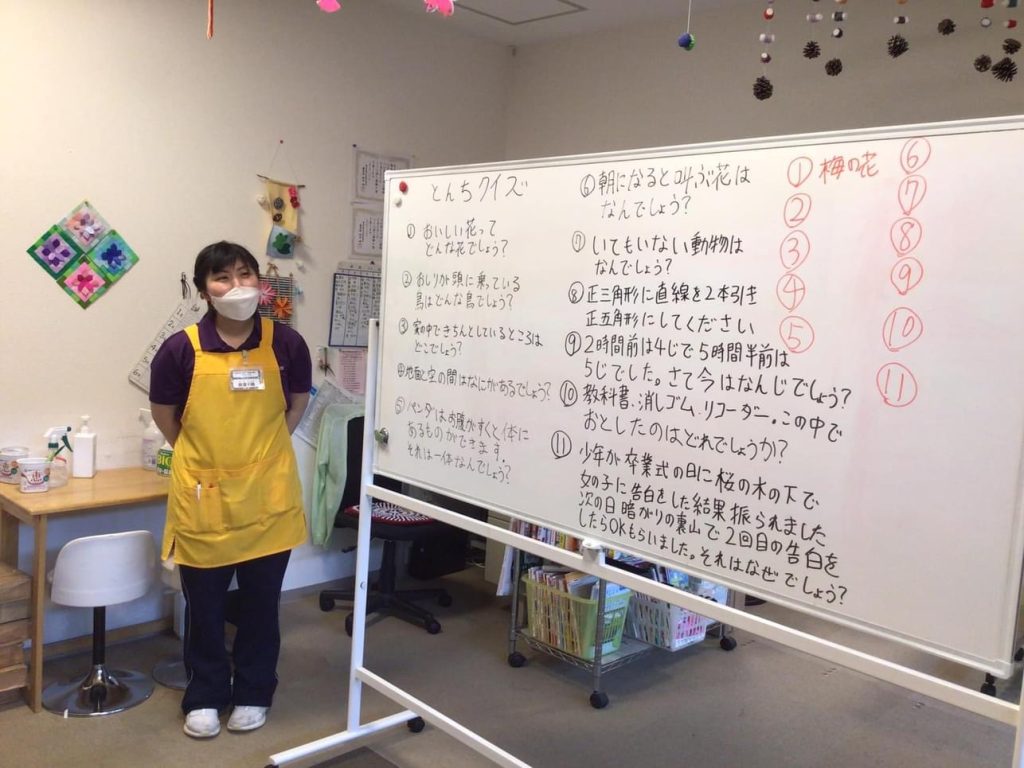 とんちクイズ
① おいしい花って
どんな花でしょう?
② おしりが頭に乗っている
鳥はどんな鳥でしょう?
③ 家の中できちんとしているところは
どこでしょう?
④ 地面と空の間はなにがあるでしょう?
⑤ パンダは、お腹がすくと体に
あるものができます。
それは一体なんでしょう?
⑥ 朝になると叫ぶ花は
なんでしょう?
⑦ いてもいない動物は
なんでしょう?
⑧ 正三角形に直線を2本引き
正五角形にしてください
⑨ 2時間前は4じで5時間半前は
5じでした。さて今はなんじでしょう?
⑩ 教科書、消しゴム、リコーダー。この中で
おとしたのはどれでしょうか?
⑪ 少年が卒業式の日に桜の木の下で
女の子に告白をした結果振られました
次の日暗がりの裏山で2回目の告白を
したらOKもらいました。それはなぜでしょう?
① 梅の花
②
③
④
⑤
⑥
⑦
⑧
⑨
⑩
⑪
BIG